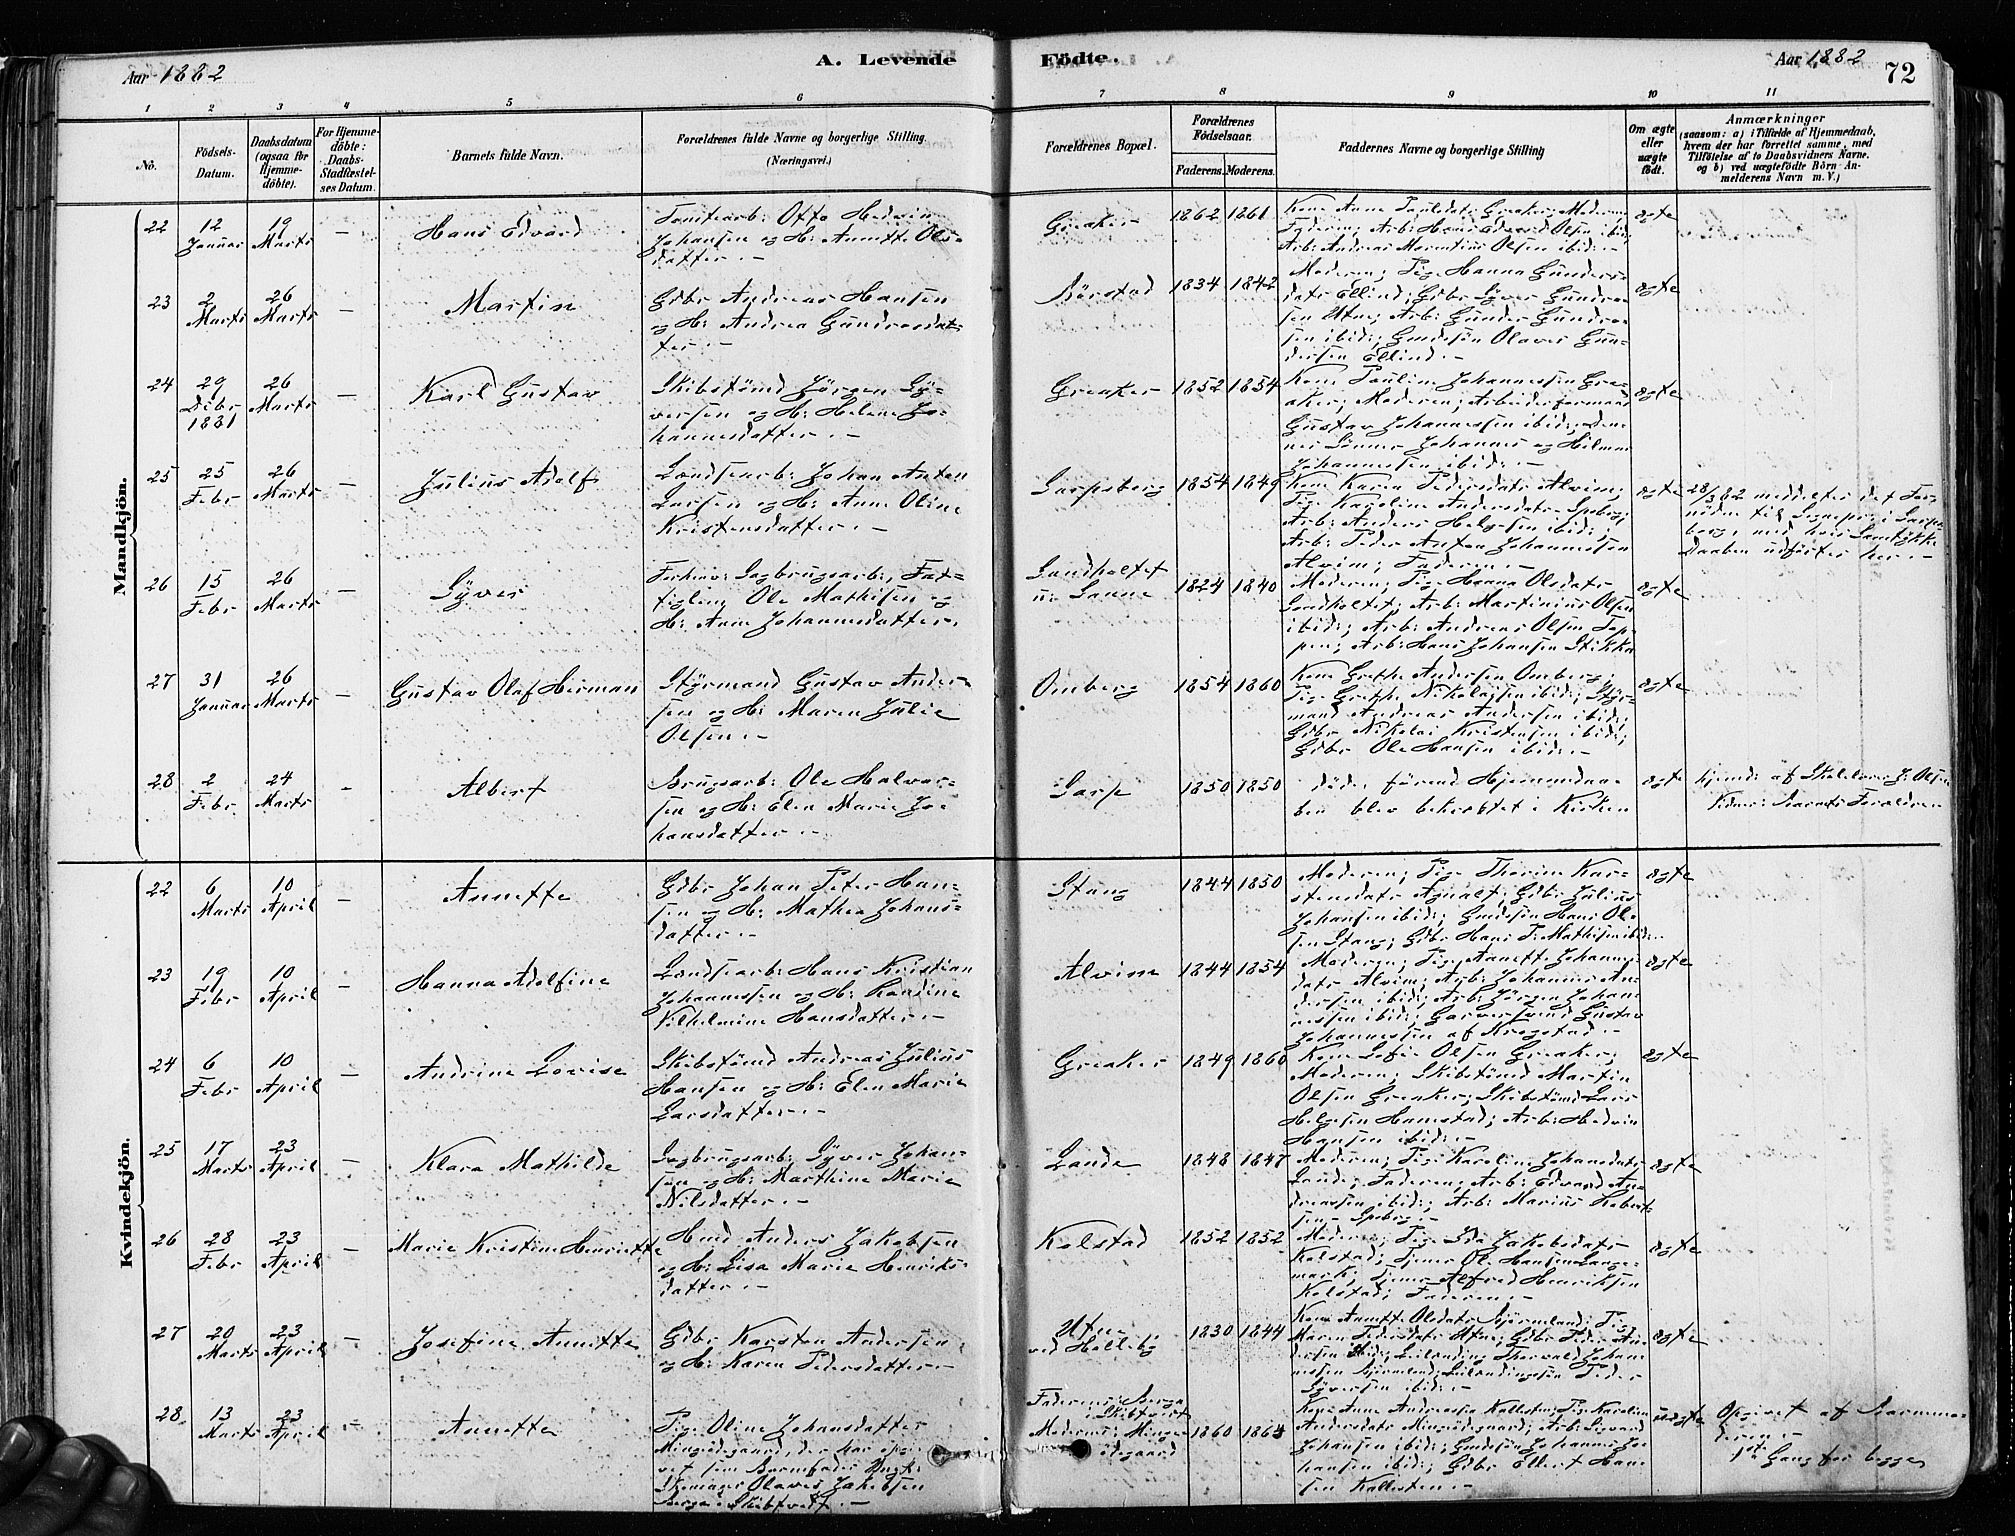 Aar 1882
A. Levende
Födte.
Aar 1882
72
1 2 3 4 5 6 7 8 9 10 11
No.
Födsels-
Datum.
Daabsdatum
(ogsaa for
Hjemme-
döbte).
For Hjemme-
döbte:
Daabs-
Stadfæstel-
ses Datum.
Barnets fulde Navn.
Forældrenes fulde Navne og borgerlige Stilling.
(Næringsvei.)
Forældrenes Bopæl.
Forældrenes
Födselsaar.
Faderens. Moderens.
Faddernes Navne og borgerlige Stilling
Om ægte
eller
uægte
födt.
Anmærkninger
(saasom: a) i Tilfælde af Hjemmedaab,
hvem der har forrettet samme, med
Tilföielse af to Daabsvidners Navne.
og b) ved uægtefödte Börn An-
melderens Navn m. V.)
Mandkjön.
22 12 Januar 19 Marts - Hans Edvard
Tomtearb: Otto Hedvin
Johansen og H: Annette Ols-
datter.-
Greaker 1862 1861
Kone Anne Paulsdatr Greaker; Moderen;
Faderen; Arb: Hans Edvard Olsen ibid;
Arb: Andreas Martinius Olsen ibid:-
ægte
23 2 Marts 26 Marts - Martin
Gdbr Andreas Hansen
og H: Andrea Gundersdat-
ter.-
Börstad 1834 1842
Moderen; Pige Hanna Gunders-
datr Ellind; Gdbr Syver Gunder-
sen Utne; Arb: Gunder Gunder-
sen ibid; Gmdssön Olaves Gun-
dersen Ellind.-
ægte
24 29 Debr 1881 26 Marts - Karl Gustav
Skibstömd Jörgen Sy-
versen og H: Helene Jo-
hannesdatter.-
Greaker 1852 1854
Kone Pauline Johannessen Gre-
aker; Moderen; Arbeiderformand
Gustav Johannessen ibid; Den-
nes Sönner Johannes og Hilmar
Johannessen ibid:-
ægte
25 25 Febr 26 Marts - Julius Adolf
Londsearb: Johan Anton
Larsen og H: Anne Oline
Kristensdatter.-
Sarpsborg 1854 1849
Kone Karen Pedersdatr Alvim;
Pige Karoline Andersdatr Spberg;
Arb: Anders Helgesen ibid;
Arb: Peder Anton Johannessen
Alvim; Faderen.-
ægte
28/3 82 meddeltes det For-
nödne til Sognepr: i Sarps-
borg, med hvis Samtykke
Daaben udförtes her.-
26 15 Febr 26 Marts - Syver
Forhenv: Sagbrugsarb:, Fat-
tiglem Ole Mathisen og
H: Anne Johannesdatter.
Sandholtet
u: Sanne 1824 1840
Moderen; Pige Hanna Olsdatr
Sandholtet; Arb: Martinius Olsen
ibid; Arb: Andreas Olsen Top-
pen; Arb: Hans Johansen Stikka
ægte
27 31 Januar 26 Marts - Gustav Olaf Herman
Styrmand Gustav Ander-
sen og H: Maren Julie
Olsen.-
Omberg 1854 1860
Kone Grethe Andersen Omberg;
Pige Grethe Nikolaisen ibid; Styr-
mand Andreas Andersen ibid;
Gdbr Nikolai Kristensen ibid;
Gdbr Ole Hansen ibid:-
ægte
28 2 Febr 24 Marts - Albert
Brugsarb: Ole Halvor-
sen og H: Elen Marie Jo-
hansdatter.-
Sarp 1850 1850
döde, förend Hjemmedaa-
ben blev bekræftet i Kirken
ægte
Hjemd: af Skolelærer J. Olsen
Vidner: Barnets Forældre.
Kvindekjön.
22 6 Marts 10 April - Annette
Gdbr Johan Peter Han-
sen og H: Mathea Johans-
datter.-
Stang 1844 1850
Moderen; Pige Thorine Kar-
stensdatr Agnalt; Gdbr Julius
Johansen ibid; Gmdssön Hans Ol-
sen Stang; Gdbr Hans P. Mathisen ibid.-
ægte
23 19 Febr 10 April - Hanna Adolfine
Londsearb: Hans Kristian
Johannessen og H: Randine
Vilhelmine Hansdatter.-
Alvim 1844 1854
Moderen; Pige Annette Johannes-
datr Alvim; Arb: Johannes An-
dersen ibid; Arb: Jörgen Johan-
nessen ibid; Garversvend Gustav
Johannessen af Krogstad.-
ægte
24 6 Febr 10 April - Andrine Lovise
Skibstömd Andreas Julius
Hansen og H: Elen Marie
Larsdatter.-
Greaker 1849 1860
Kone Sofie Olsen Greaker;
Moderen; Skibstömd Martin
Olsen Greaker; Skibstömd Lars
Helgesen Hamstad; Arb: Hedvin
Hansen ibid:-
ægte
25 17 Marts 23 April - Klara Mathilde
Sagbrugsarb: Syver Johan-
sen og H: Marthine Marie
Nilsdatter.-
Lande 1848 1847
Moderen; Pige Karoline Johansdatr
Lande; Faderen; Arb: Edvard An-
dreassen ibid; Arb: Marius Robert-
sen Spberg.-
ægte
26 28 Febr 23 April - Marie Kristine Henriette
Hmd Anders Jakobsen
og H: Lisa Marie Henriks-
datter.-
Kolstad 1852 1852
Moderen; Pige Ida Jakobsdatr
Kolstad; Tjener Ole Hansen Lange-
mark; Tjener Alfred Henriksen
Kolstad; Faderen.-
ægte
27 20 Marts 23 April - Josefine Annette
Gdbr Karsten Andersen
og H: Karen Pedersdatter.-
Utne
ved Halleby 1830 1844
Kone Annette Olsdatr Björnland; Pige
Maren Pedersdatr Utne; Gdbr Peder An-
dersen ibid; Leilænding Thorvald Johan-
nessen Björnland; Leilændingssön Peder
Syversen ibid:-
ægte
28 13 Marts 23 April - Annette
Pige Oline Johansdatter
Mingeödegaard, der har opgi-
vet som Barnefader Ungk:
Skomager Olaves Jakobsen
Berga i Skibtvedt.-
Faderens: Berga
i Skibtvedt
Moderens: Minge-
ödegaard 1860 1864
Kone Anne Andreassen Kallesten; Pige Karoline
Andersdatr Mingeödegaard; Arb: Sigvard
Johansen ibid; Gmdssön Johannes Jo-
hansen ibid; Gdbr Ellert Han-
sen Kallesten.-
uægte
Opgivet af Barnemo-
deren.-
1ste Gang for begge